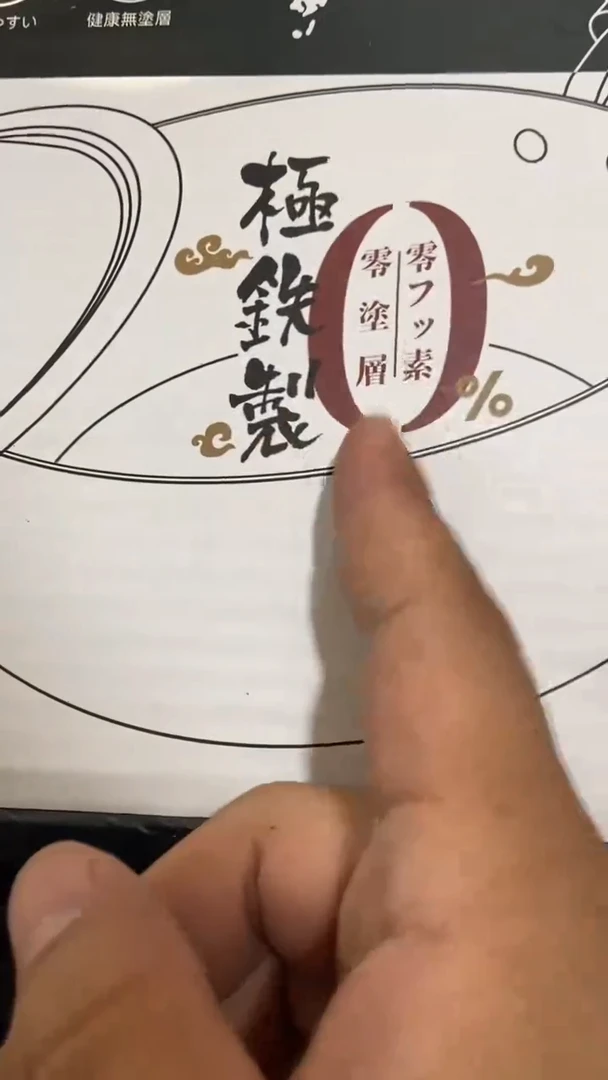 やすい
健康無塗層
極鉄製
零フッ素
零塗層
0%